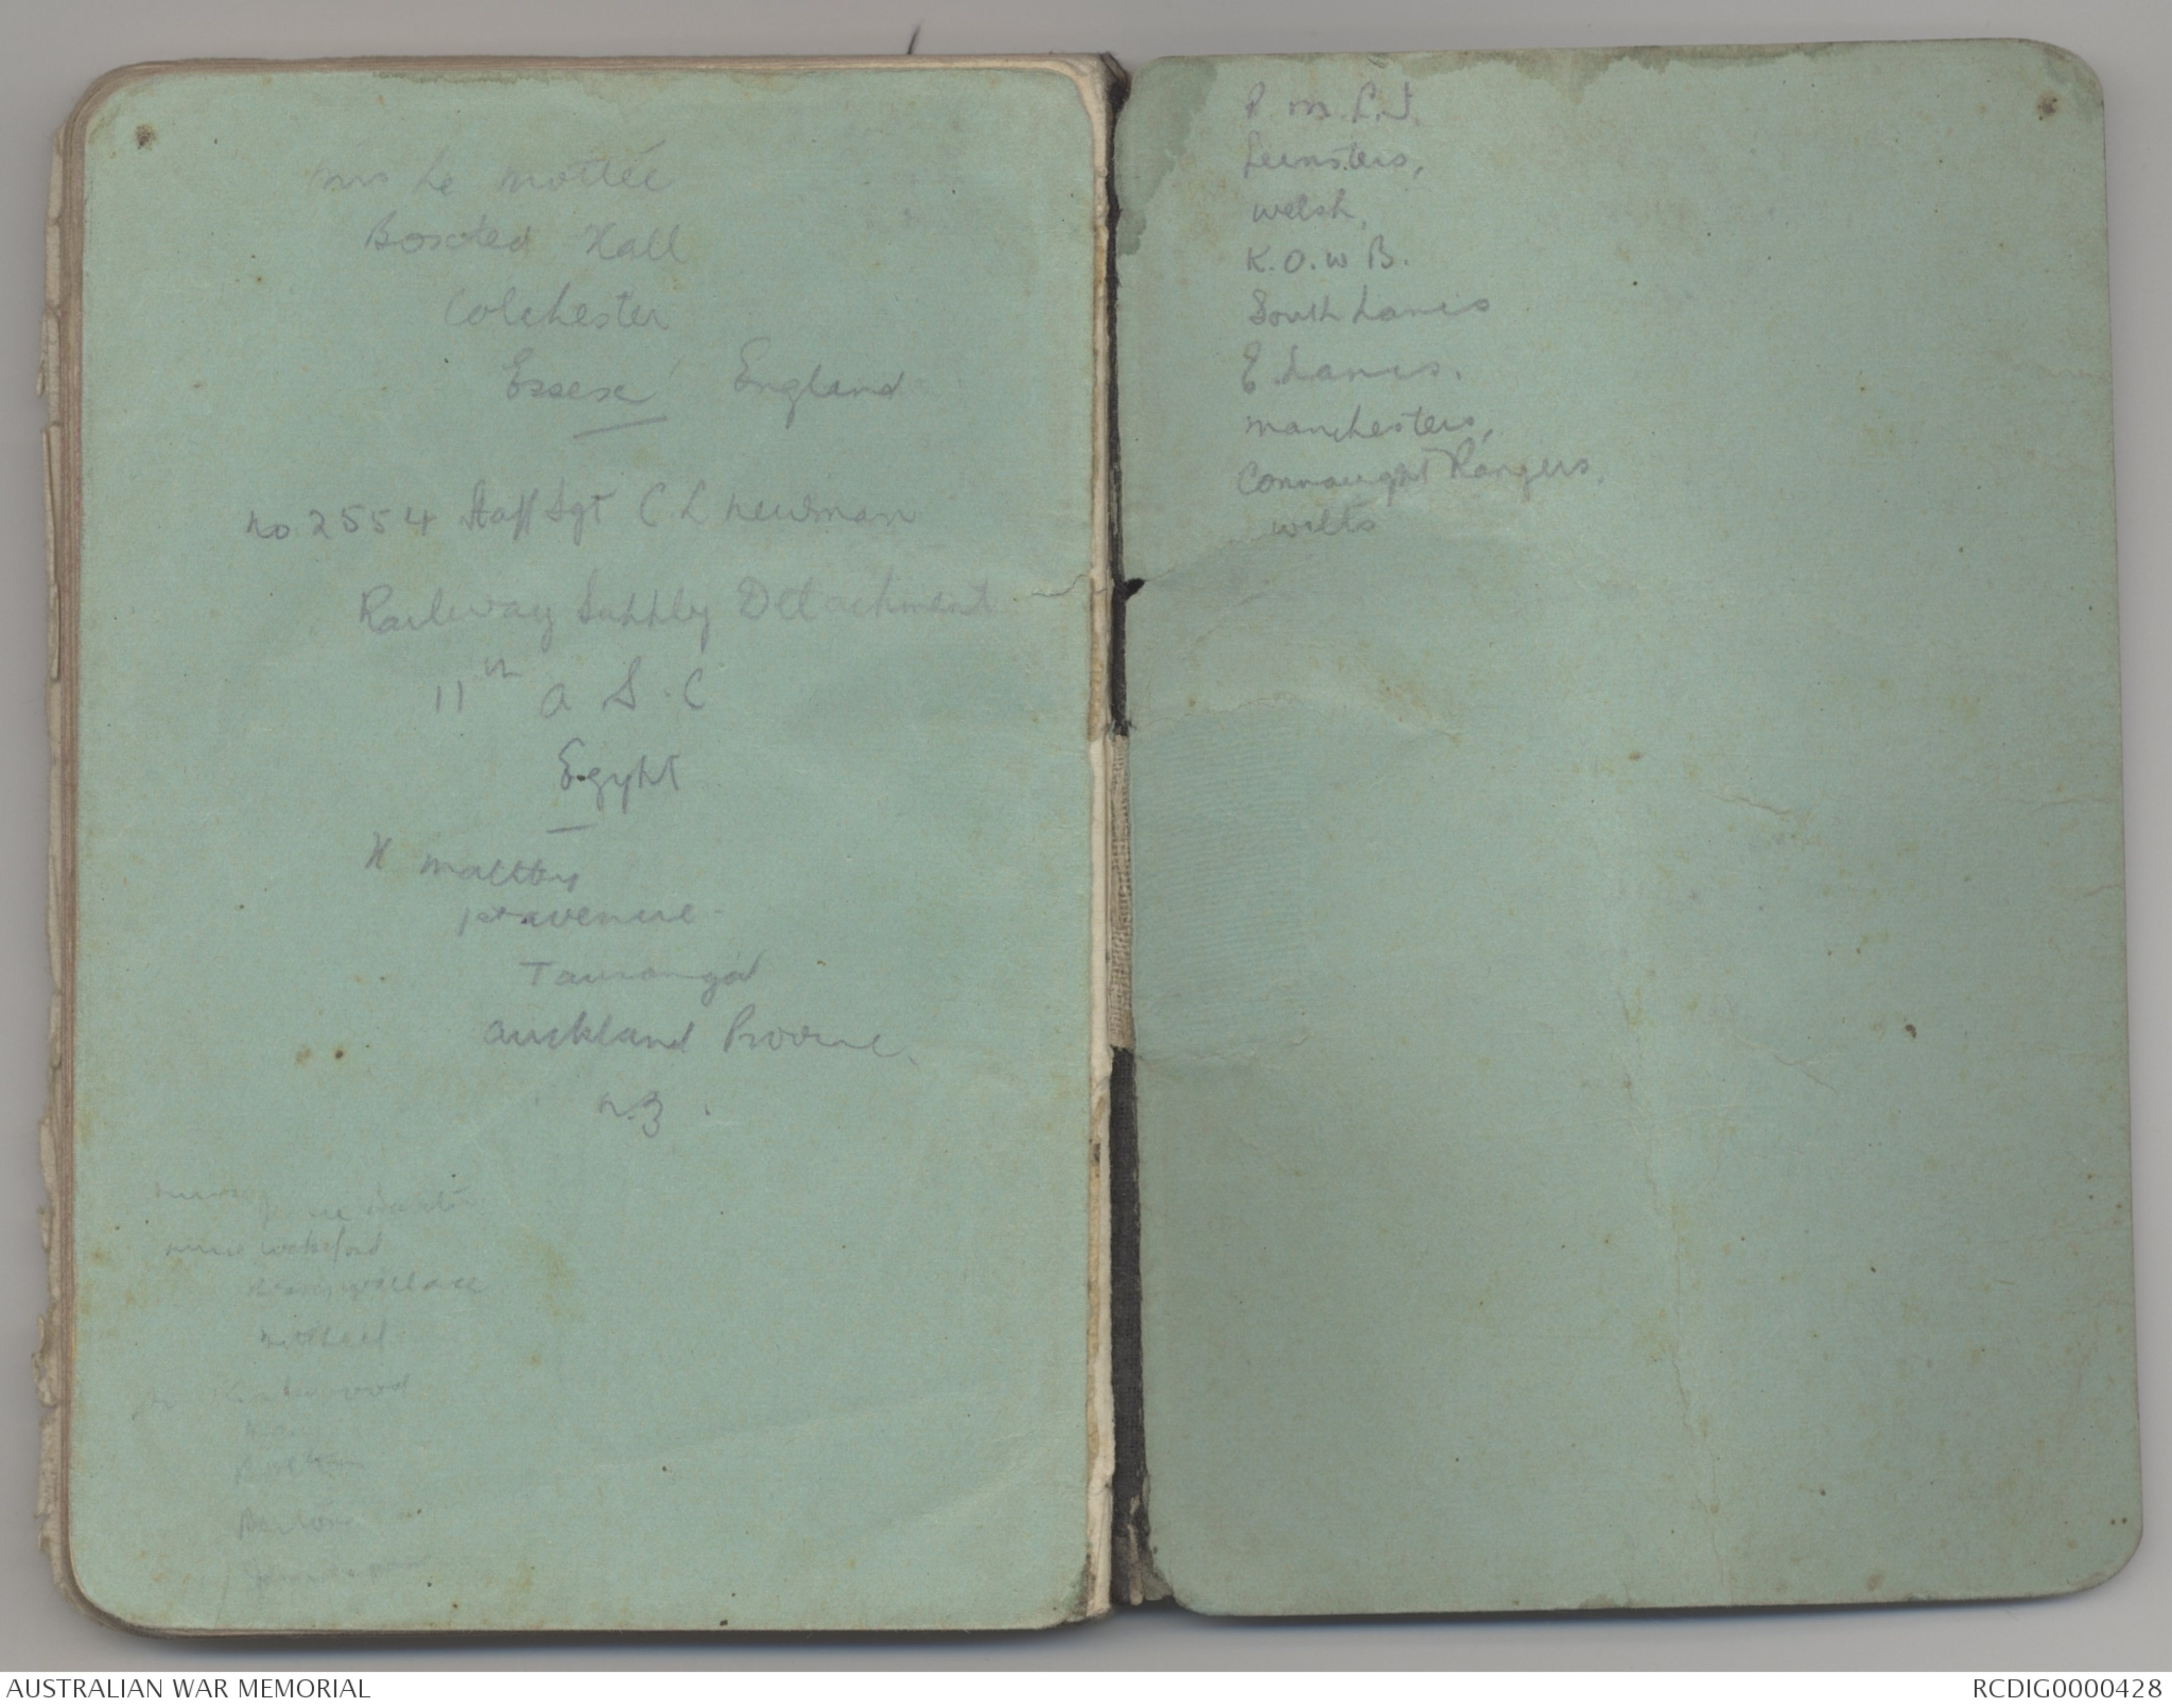 Mrs Le Mottée
Boxted Hall
Colchester
Essex England
No 2554 Staff Sgt C L Newman
Railway Supply Detachment
11th A S. C
Egypt
H Maltby
1st Avenue
Tauranga
Auckland Provine.
N.Z.
Nurse
Nurse Wakeford
Wallace
Mitchell
Barton
R. M. L. I.
Leinsters,
Welsh,
K. O. W B.
South Lancs
E. Lancs.
Manchesters,
Connaught Rangers.
Wilts
AUSTRALIAN WAR MEMORIAL
RCDIG0000428